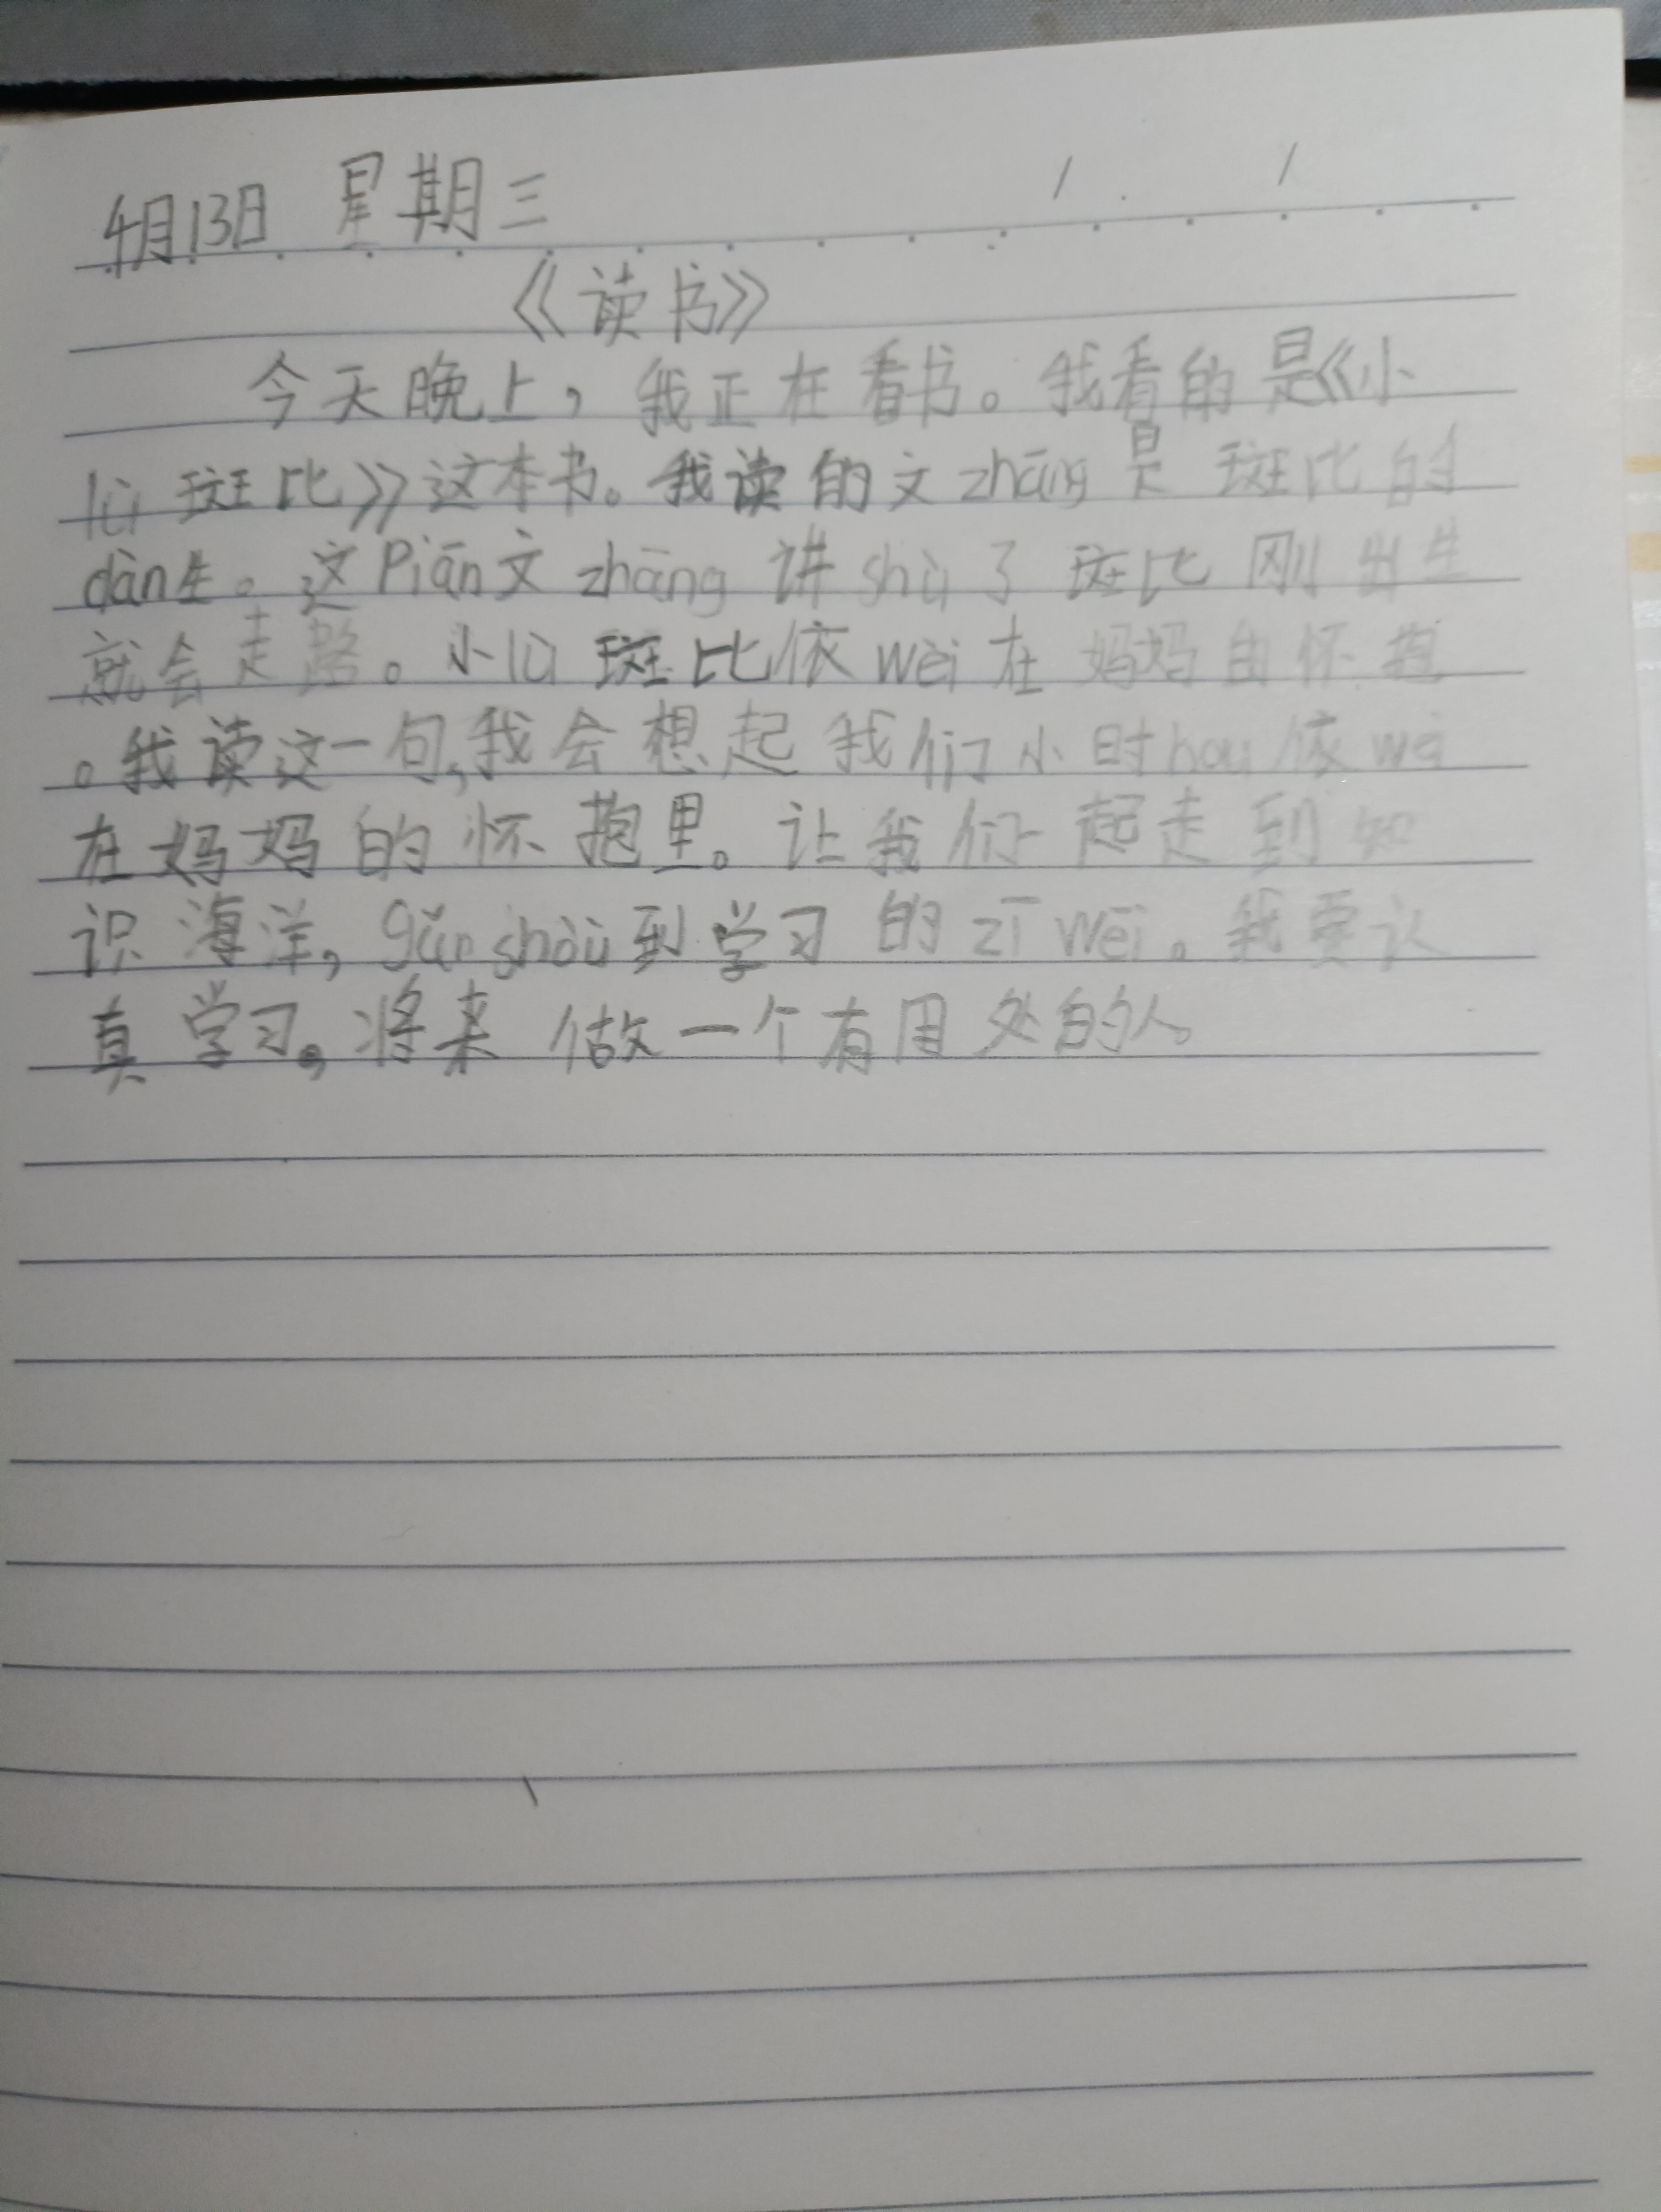 4月13日 星期三
《读书》
今天晚上，我正在看书。我看的是《小
lù 斑比》这本书。我读的文zhāng是 斑比的
dàn生。这Piān文zhāng 讲shù了 斑比 刚出生
就会走路。小lù 斑比依wēi在 妈妈的怀抱
。我读这一句,我会想起我们小时hou依wēi
在妈妈的怀抱里。让我们一起走到知
识海洋，gǎn shòu到学习的zī wēi。我要认
真学习。将来 做一个有用处的人。